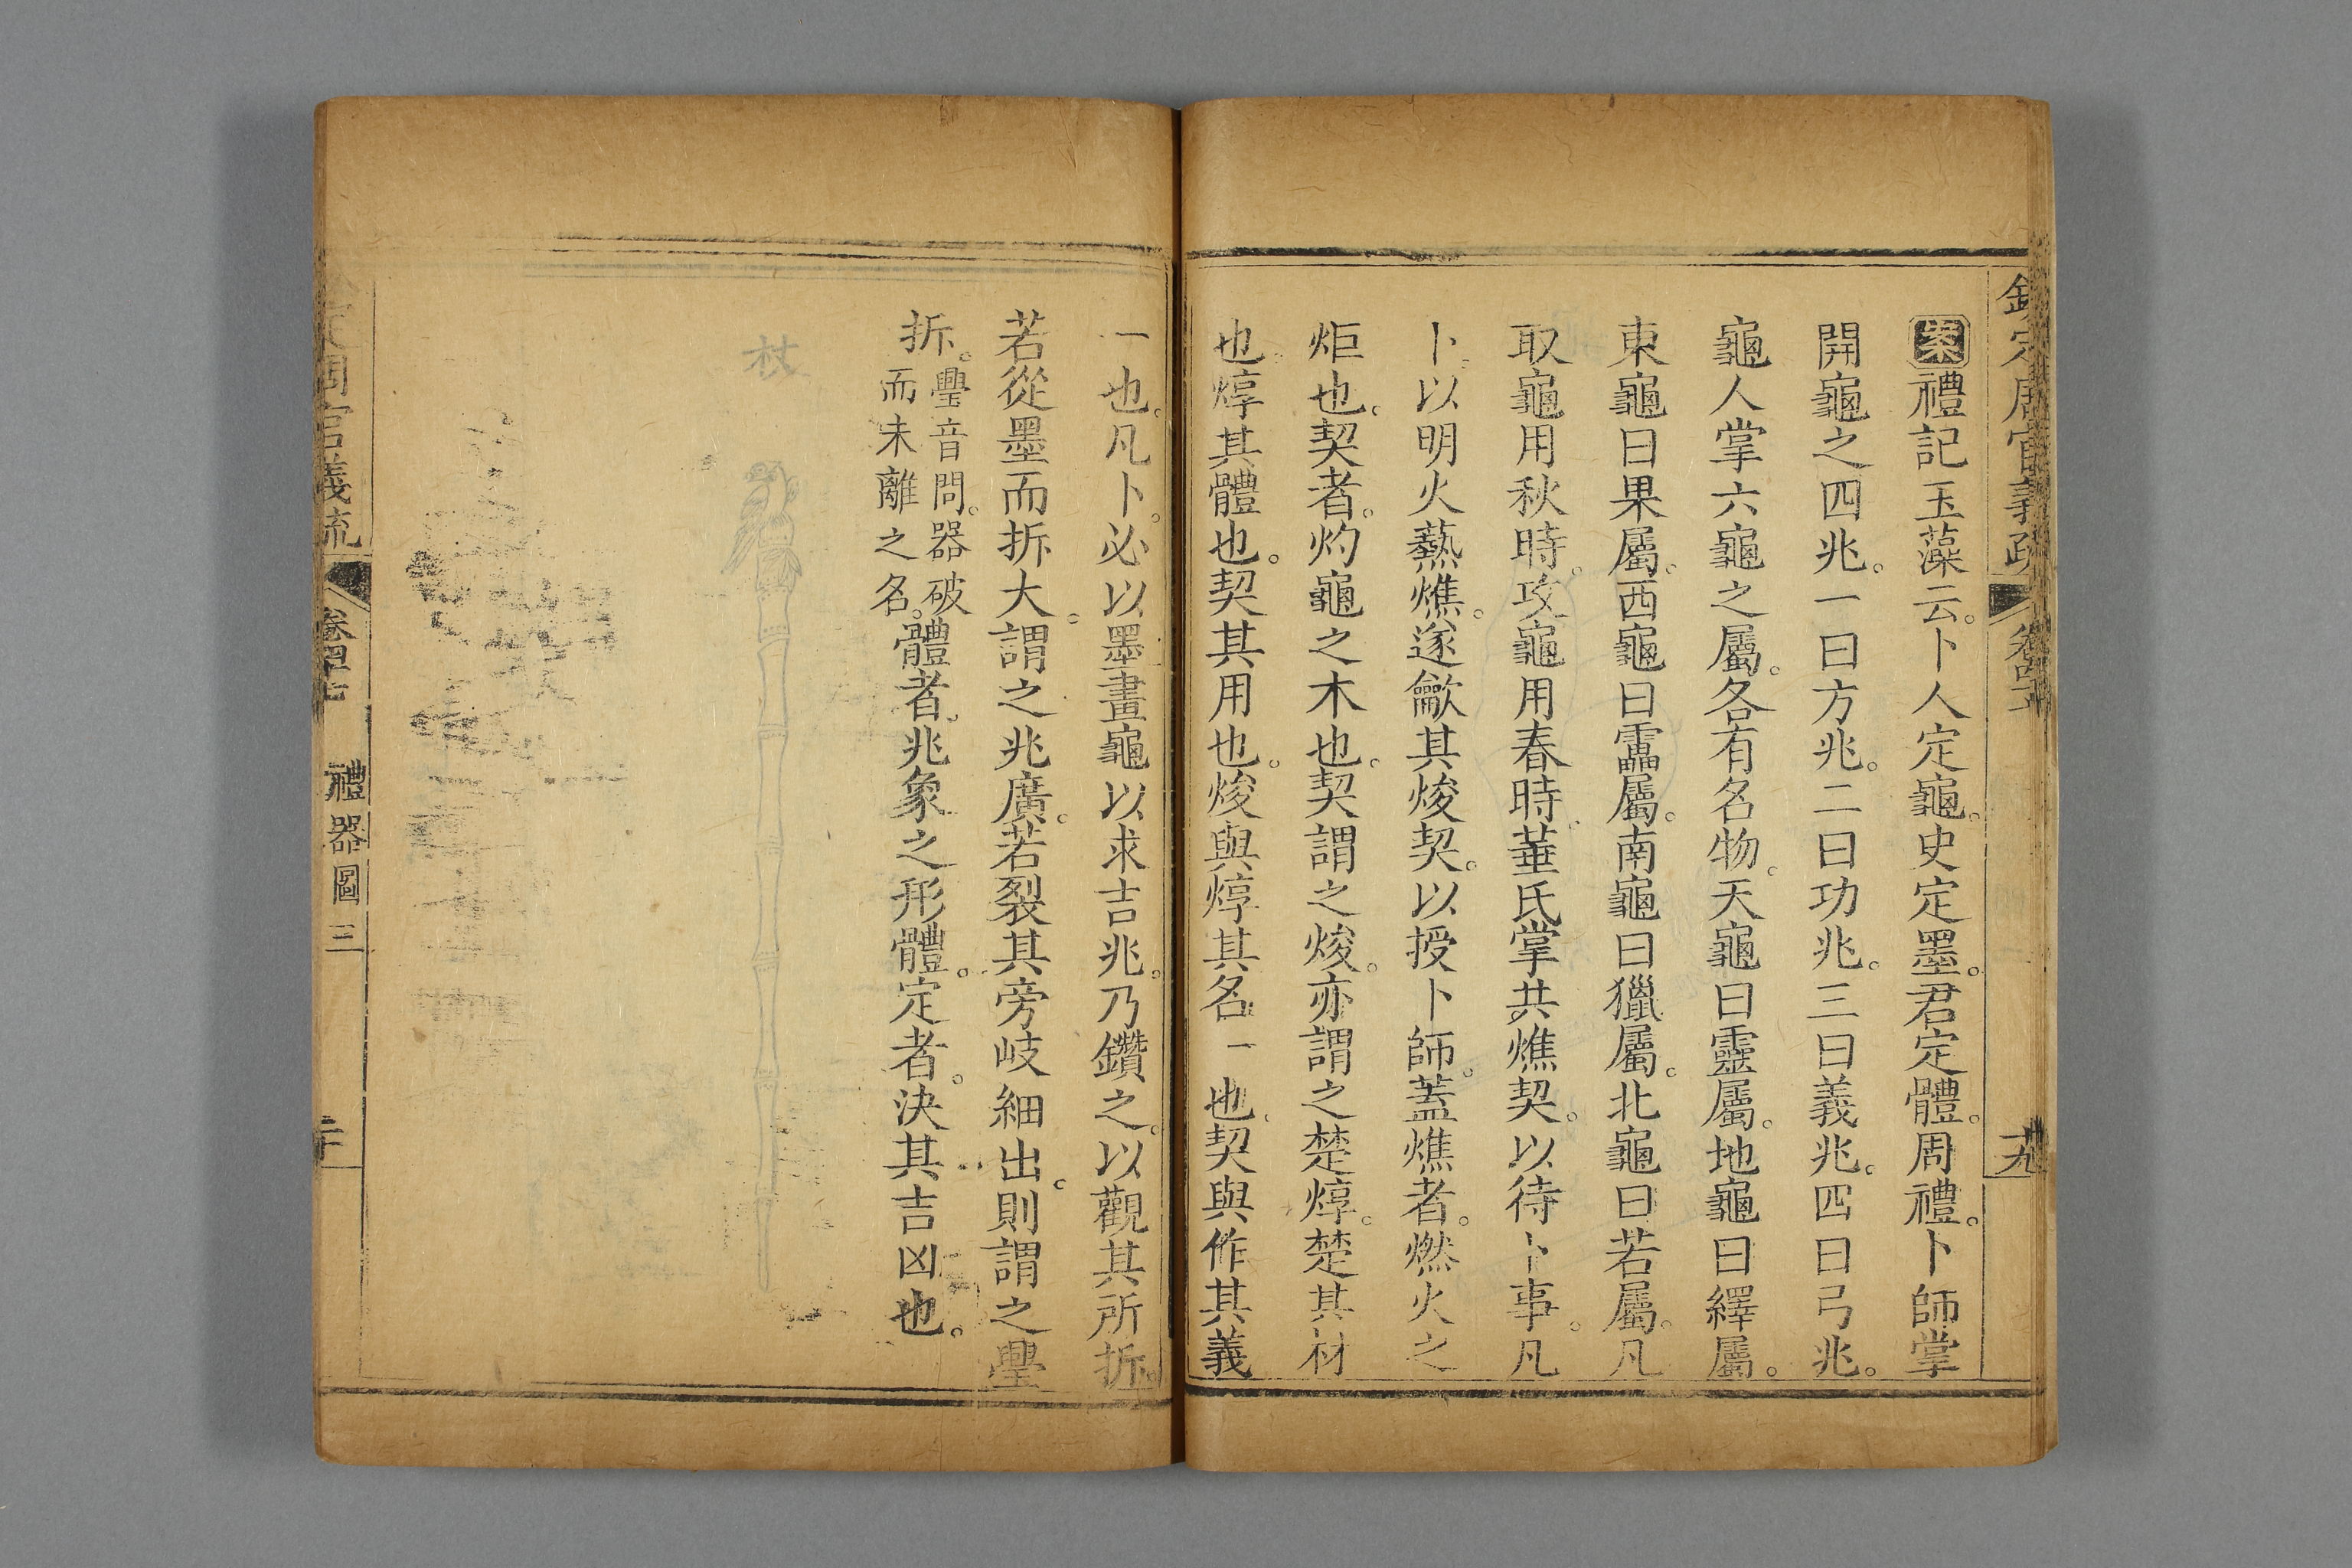 欽定周官義疏 卷四十七 十九
案禮記玉藻云。卜人定龜。史定墨。君定體。周禮。卜師掌
開龜之四兆。一曰方兆。二曰功兆。三曰義兆。四曰弓兆。
龜人掌六龜之屬。各有名物。天龜曰靈屬。地龜曰繹屬。
東龜曰果屬。西龜曰靁屬。南龜曰獵屬。北龜曰若屬。凡
取龜用秋時。攻龜用春時。菙氏掌共燋契。以待卜事。凡
卜。以明火爇燋。遂龡其焌契。以授卜師。蓋燋者。燃火之
炬也。契者。灼龜之木也。契謂之焌。亦謂之楚焞。楚其材
也。焞其體也。契其用也。焌與焞其名一也。契與作其義
一也。凡卜。必以墨畫龜。以求吉兆。乃鑽之。以觀其所拆。
若從墨而拆大。謂之兆廣。若裂其旁岐細出。則謂之璺
拆。璺音問。器破而未離之名。體者。兆象之形體。定者。決其吉凶也。
杖
定周官義疏 卷四十七 禮器圖三 二十